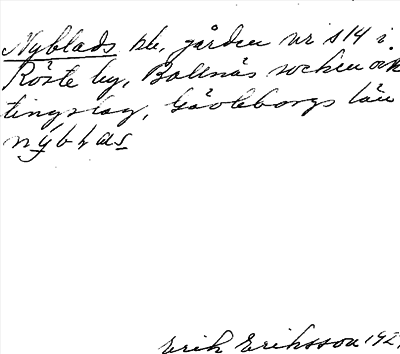 Nyblads hb, gården nr s14 i
Röste by, Bollnäs socken och
tingslag, Gävleborgs län
nýbḷas
Erik Eriksson 192